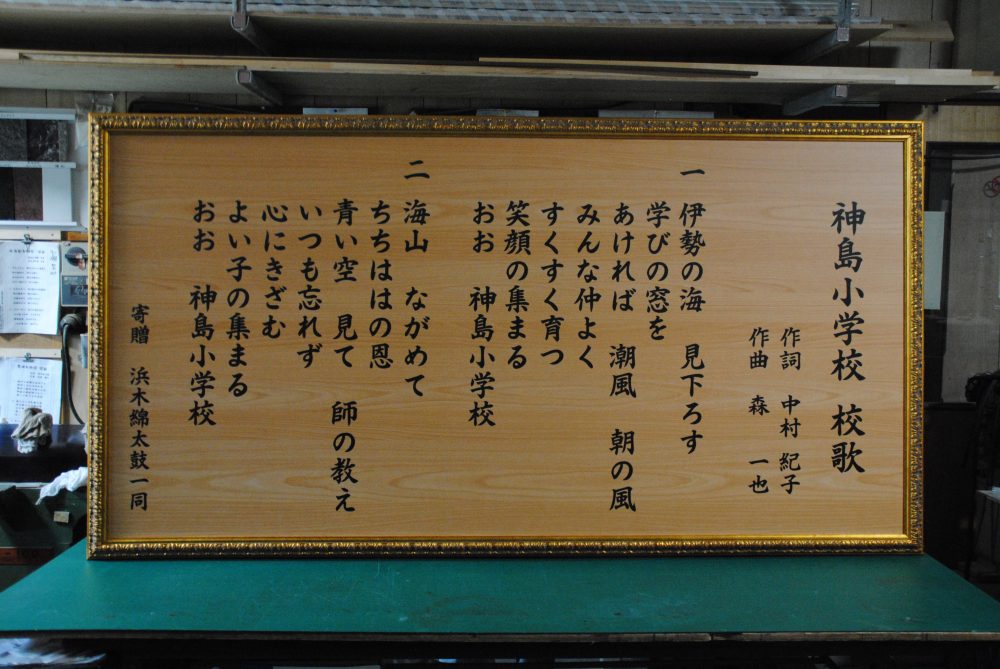 神島小学校　校歌
作詞　中村　紀子
作曲　森　一也
一　伊勢の海　見下ろす
学びの窓を
あければ　潮風　朝の風
みんな仲よく
すくすく育つ
笑顔の集まる
おお　神島小学校
二　海山　ながめて
ちちははの恩
青い空　見て　師の教え
いつも忘れず
心にきざむ
よい子の集まる
おお　神島小学校
寄贈　浜木綿太鼓一同